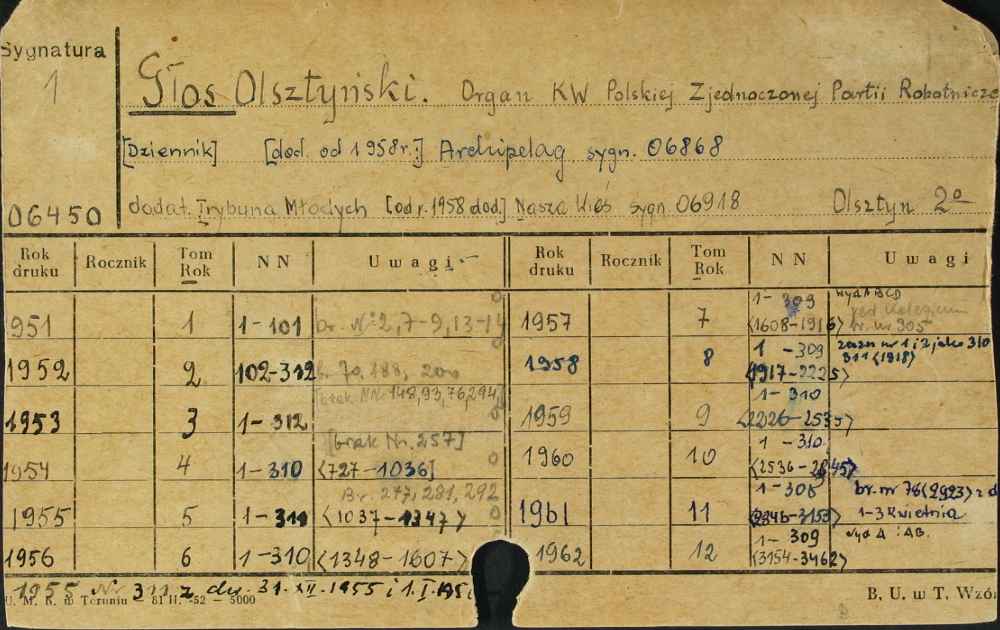 Sygnatura
1
06450
Głos Olsztyński. Organ KW Polskiej Zjednoczonej Partii Robotnicze
[Dziennik] [dod. od 1958r.:] Archipelag sygn. 06868
dodat. Trybuna Młodych [od r. 1958 dod.] Nasza Wieś sygn 06918 Olsztyn 2º
Rok druku Rocznik Tom Rok NN Uwagi Rok druku Rocznik Tom Rok NN Uwagi
951 1 1-101 br. Nº 2, 7-9, 13-14
1952 2 102-312 70, 188, 200
[brak NN: 148, 93, 76, 294,
1953 3 1-312
[brak Nr. 257]
1954 4 1-310 <727-1036]
Br. 277, 281, 292
1955 5 1-311 <1037-1347>
1956 6 1-310 <1348-1607>
1957 7 1-309 <1608-1916> wyd ABCD
br. nr 305
1958 8 1-309 <1917-2225> zazn nr 1 i 2 jako 310
311 <1918>
1959 9 1-310 <2226-2535>
1960 10 1-310 <2536-2845>
1961 11 1-308 <2846-3153> br. nr 78 <2923> z d
1-3 kwietnia
1962 12 1-309 <3154-3462> wyd A i AB.
1955 Nr 311 z dn. 31.XII.1955 i 1.I.195
U. M. K. w Toruniu — 81 H. -52 — 5000
B. U. w T. Wzó